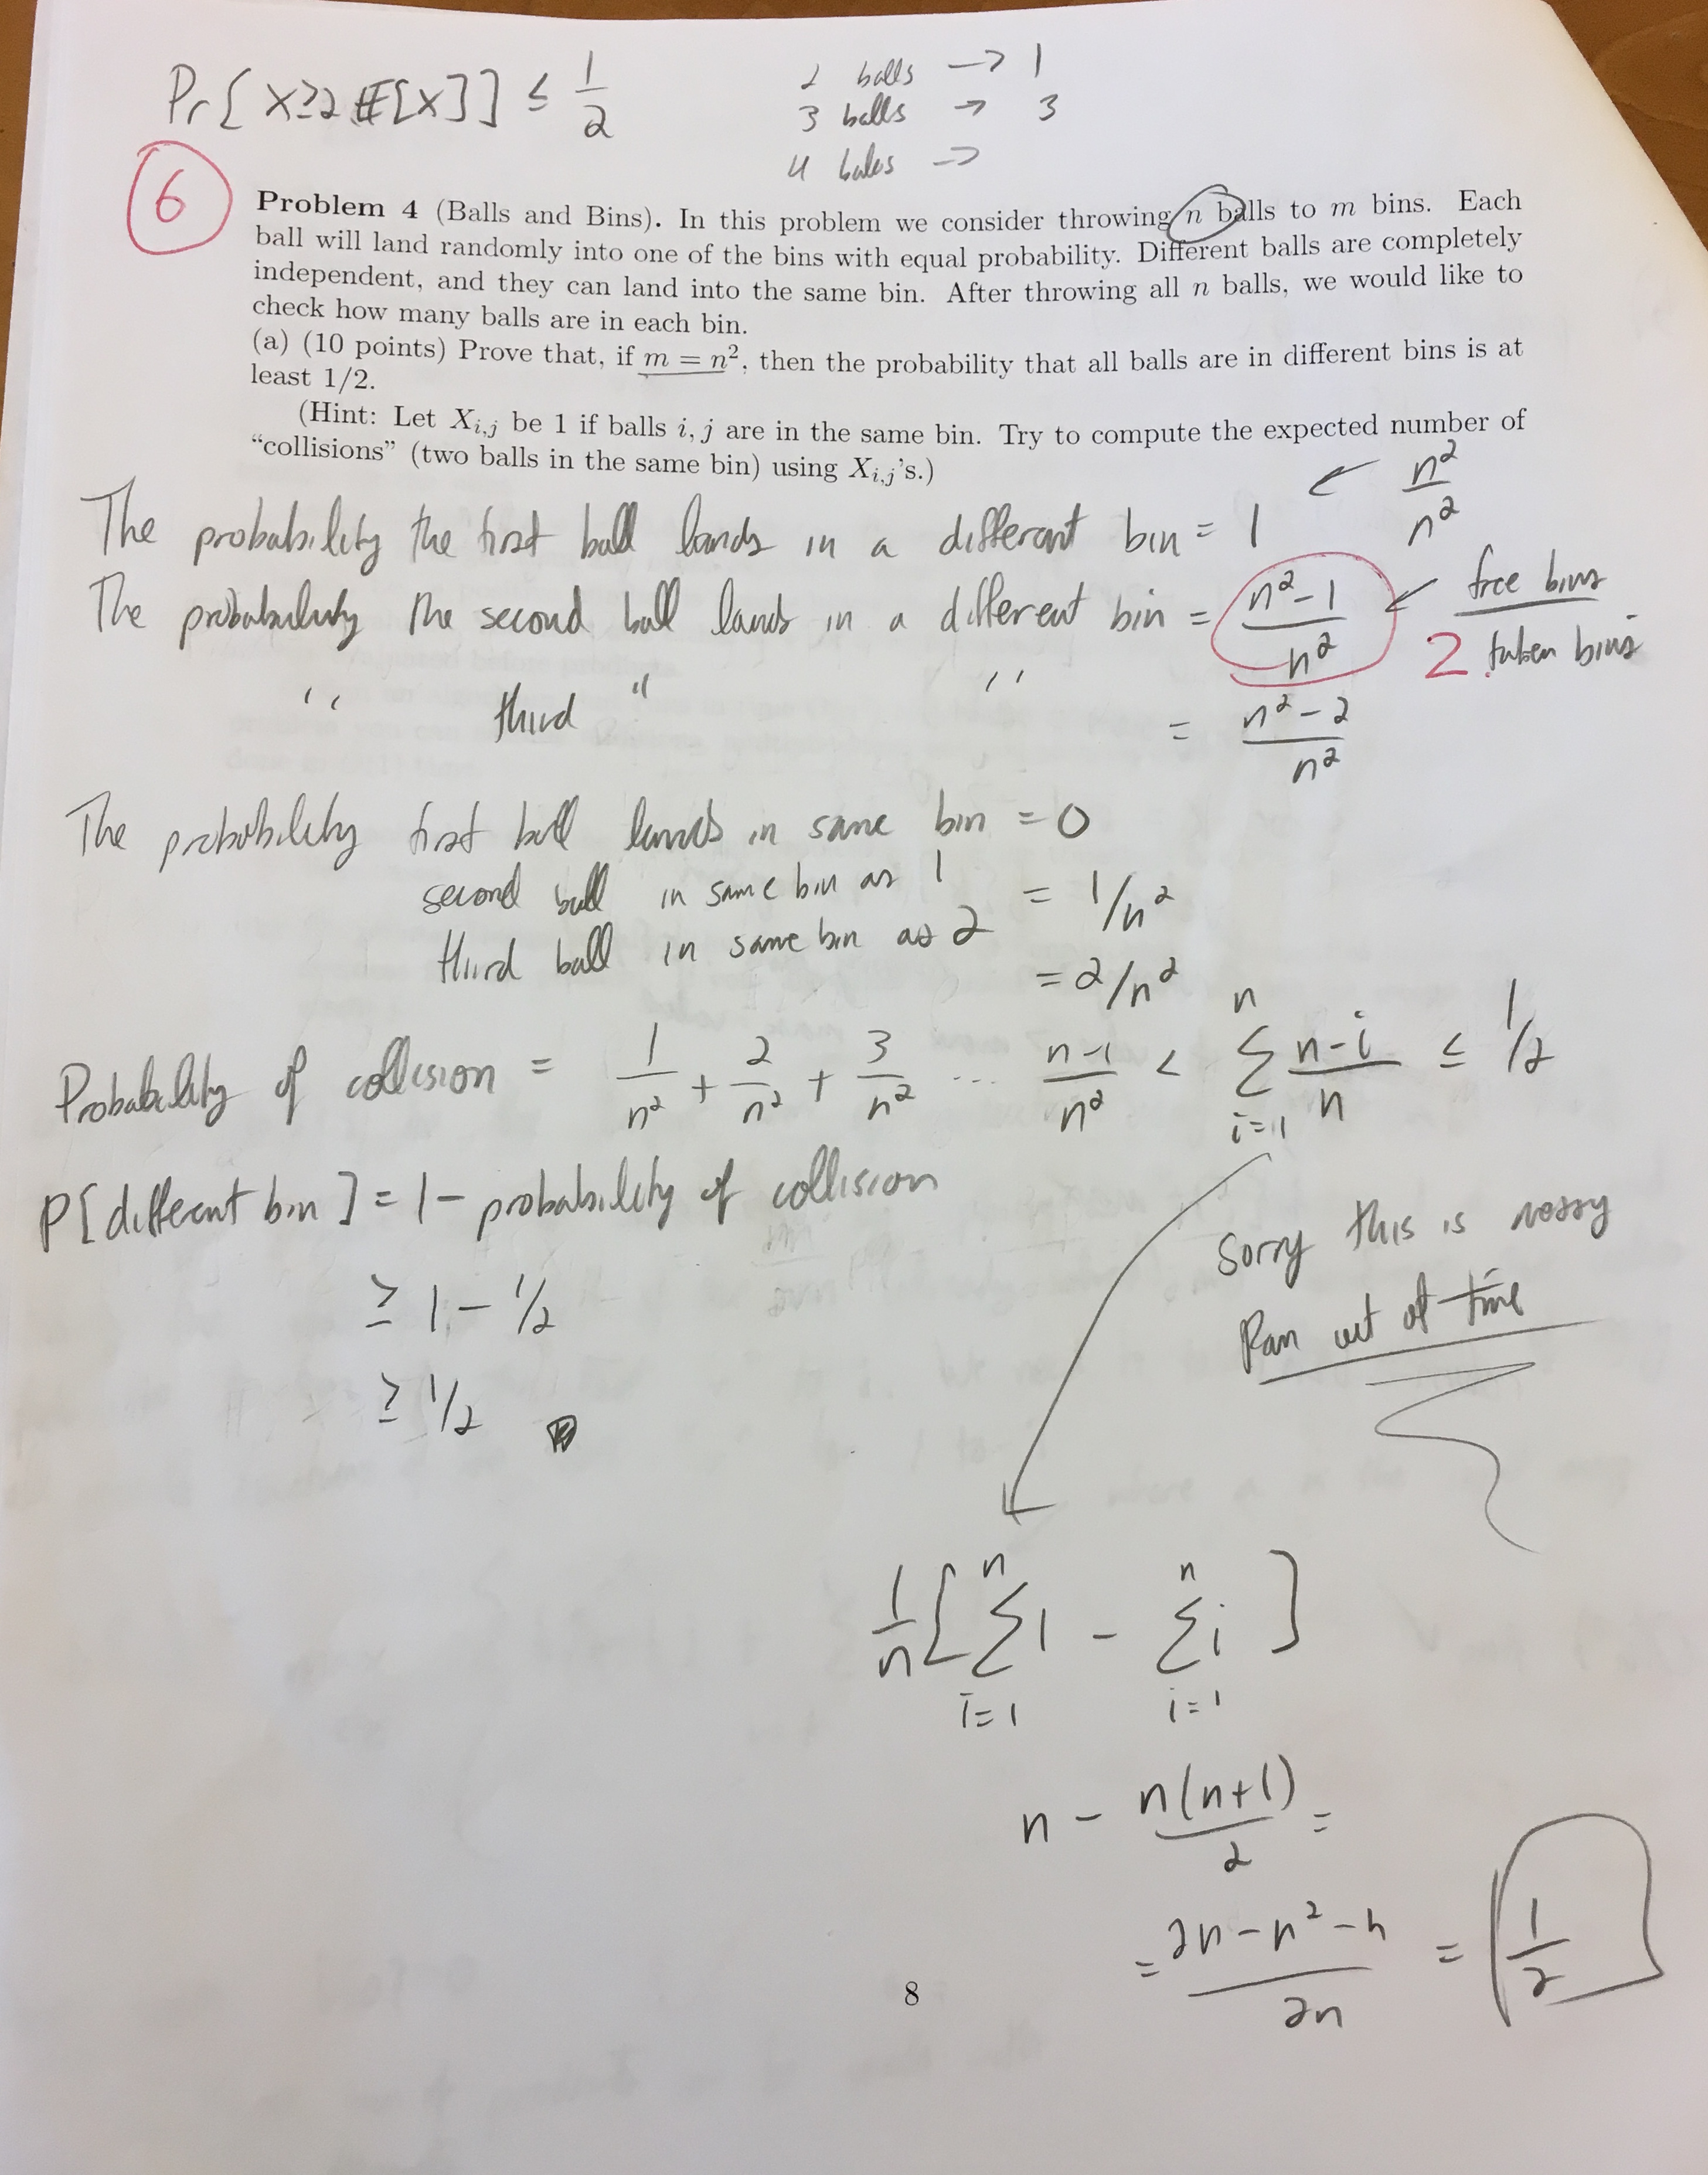 Pr[X≥2E[X]] ≤ 1/2
2 balls → 1
3 balls → 3
4 balls →
6
Problem 4 (Balls and Bins). In this problem we consider throwing n balls to m bins. Each
ball will land randomly into one of the bins with equal probability. Different balls are completely
independent, and they can land into the same bin. After throwing all n balls, we would like to
check how many balls are in each bin.
(a) (10 points) Prove that, if m = n², then the probability that all balls are in different bins is at
least 1/2.
(Hint: Let Xi,j be 1 if balls i, j are in the same bin. Try to compute the expected number of
“collisions” (two balls in the same bin) using Xi,j’s.)
The probability the first ball lands in a different bin = 1 ← n²/n²
The probability the second ball lands in a different bin = (n²-1)/n² ← free bins / taken bins
2
" third " " = (n²-2)/n²
The probability first ball lands in same bin = 0
second ball in same bin as 1 = 1/n²
third ball in same bin as 2 = 2/n²
Probability of collision = 1/n² + 2/n² + 3/n² ... (n-1)/n² < Σ_{i=1}^{n} (n-i)/n ≤ 1/2
P[different bin] = 1 - probability of collision
≥ 1 - 1/2
≥ 1/2
Sorry this is messy
Ran out of time
1/n [ Σ_{i=1}^{n} 1 - Σ_{i=1}^{n} i ]
n - n(n+1)/2 =
= (2n - n² - n)/2n = 1/2
8